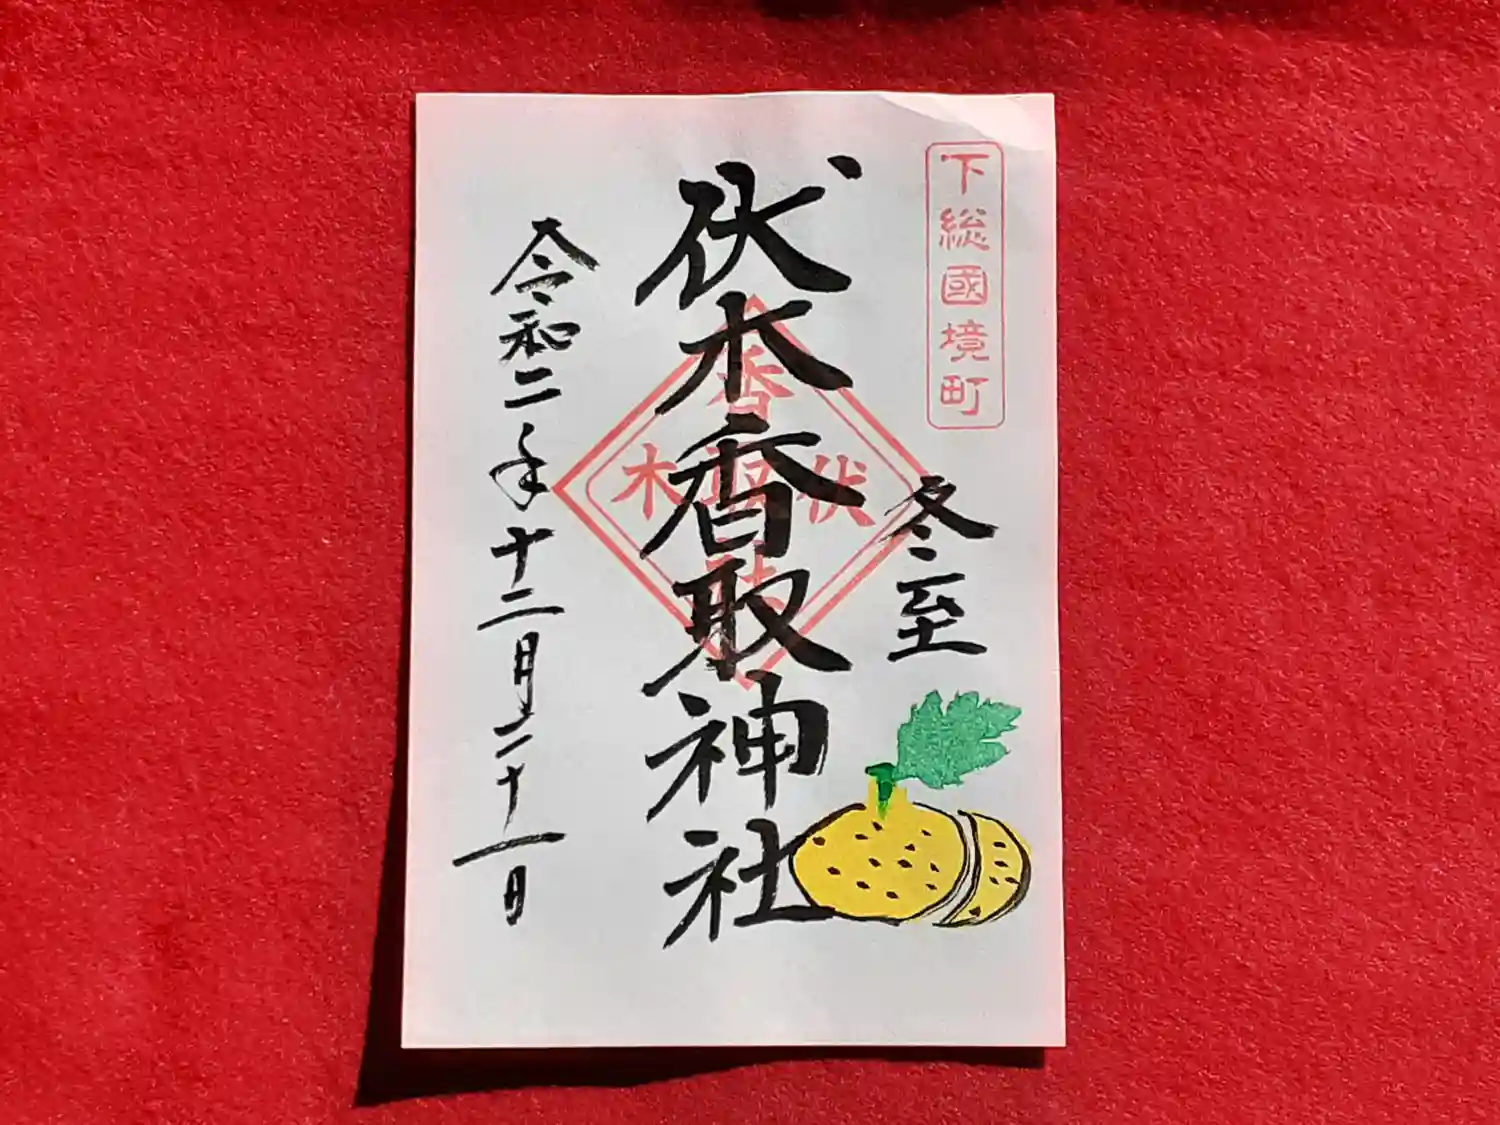 下総國境町
冬至
伏木香取神社
香取社
伏木
令和二年十二月二十一日